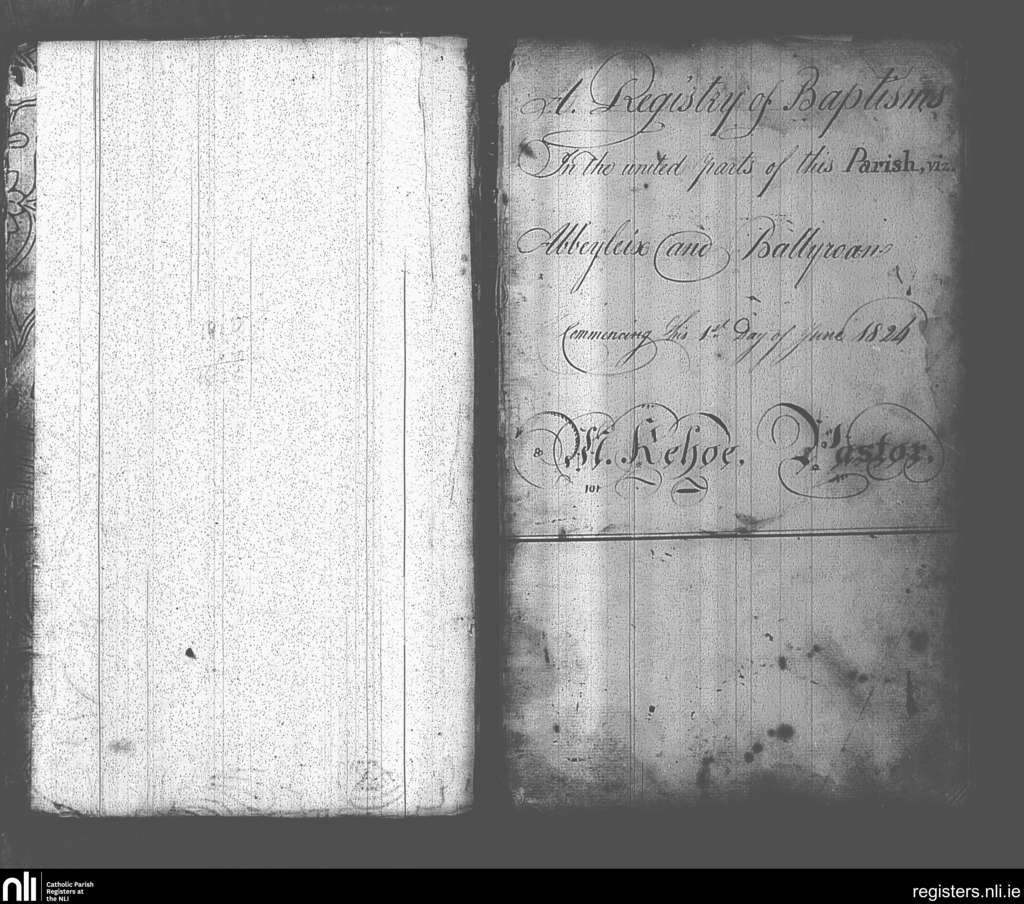 A. Registry of Baptisms
In the united parts of this Parish, viz.
Abbeyleix and Ballyroan
Commencing this 1st Day of June 1824
M. Kehoe. Pastor.
nli
Catholic Parish
Registers at
the NLI
registers.nli.ie